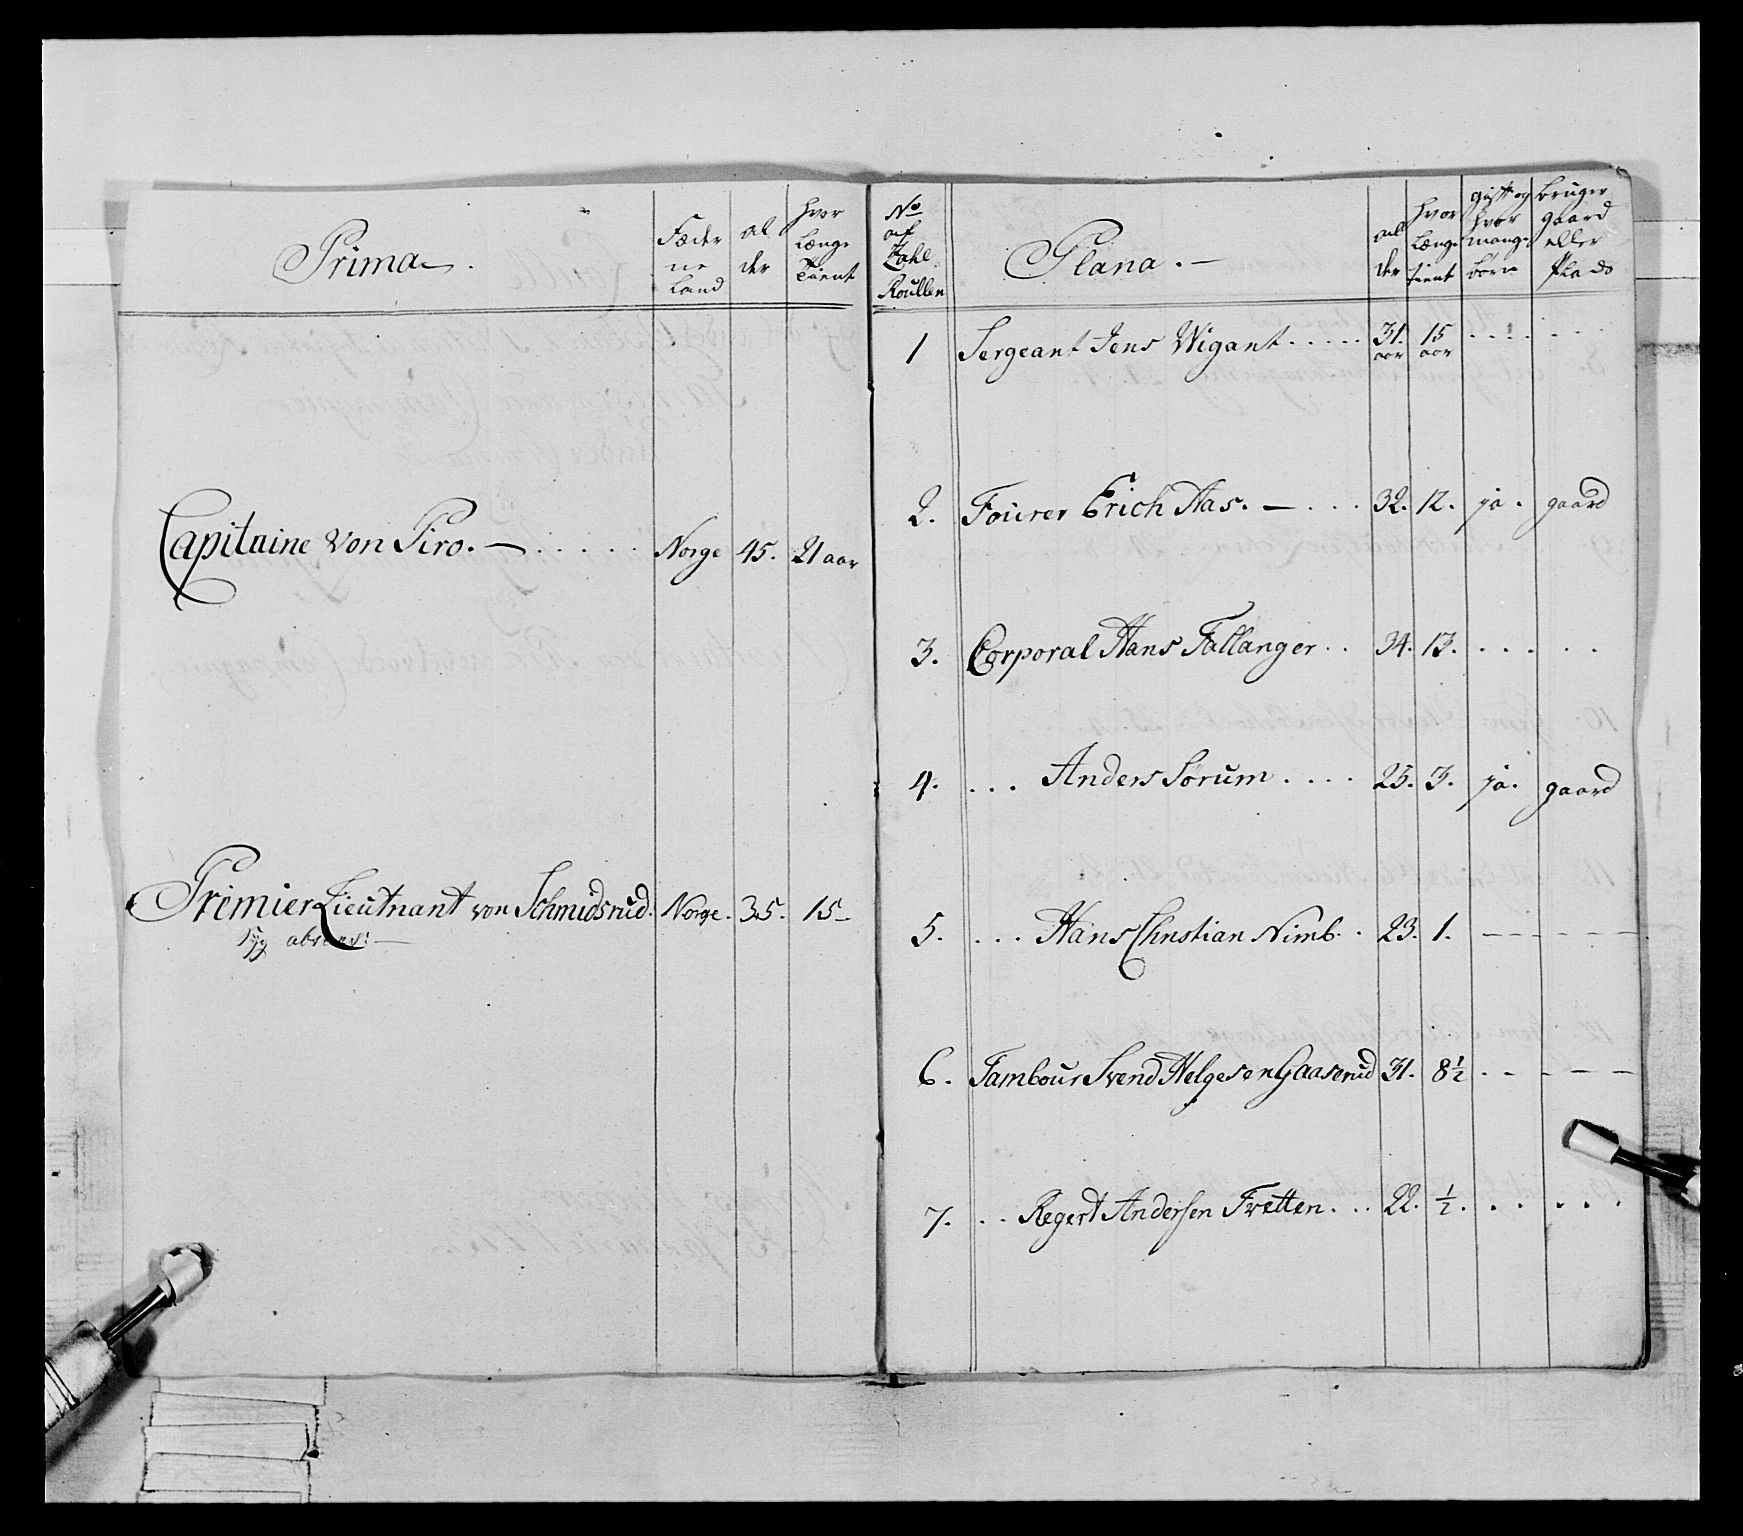 Prima.
Fæder
ne
Land
al
der
hvor
længe
tient
Capitaine von Piro. — Norge 45. 21 aar
Premier Lieutnant von Schmidsrud. Norge. 35. 15
syg absens: —
No
af
Zahl
Roullen
Plana. —
al
der
hvor
længe
tient
gift og
hvor
mange
børn
bruger
gaard
eller
Plads
1 Sergeant Jens Wigant 31. 15
aar aar
2. Fourer Erich Aas. — 32. 12. ja. gaard
3. Corporal Hans Fallanger 34. 13.
4. Anders Sørum 25. 3. ja. gaard
5. Hans Christian Nimb. 23. 1.
6. Tambour Svend Helgesen Gaaserud 31. 8½
7. Regert Andersen Tvetten 22. ½.